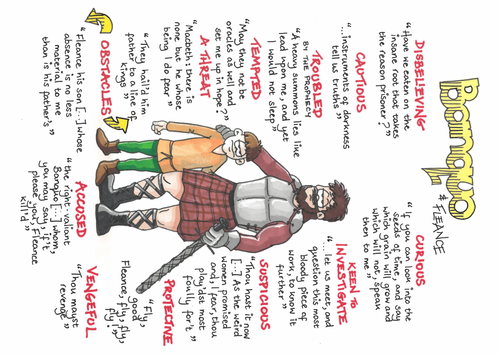 BANQUO
& FLEANCE
DISBELIEVING
"Have we eaten on the
insane root that takes
the reason prisoner?"
CAUTIOUS
"...instruments of darkness
tell us truths"
TROUBLED
BY THE PROPHECY
"A heavy summons lies like
lead upon me, and yet
I would not sleep"
TEMPTED
"May they not be
oracles as well and
set me up in hope?"
A THREAT
"Macbeth: there is
none but he whose
being I do fear"
"They hail'd him
father to a line of
kings"
OBSTACLES
"Fleance his son [...] whose
absence is no less
material to me
than is his father's"
CURIOUS
"If you can look into the
seeds of time, and say
which grain will grow and
which will not, speak
then to me"
KEEN TO
INVESTIGATE
"...let us meet, and
question this most
bloody piece of
work, to know it
further"
SUSPICIOUS
"Thou hast it now
[...] As the weird
women promised
and, I fear, thou
play'dst most
foully for't"
PROTECTIVE
"Fly,
good
Fleance, fly, fly,
fly!"
VENGEFUL
"Thou mayst
revenge"
ACCUSED
"the right-valiant
Banquo [...] whom,
you may say, if't
please you, Fleance
kill'd"